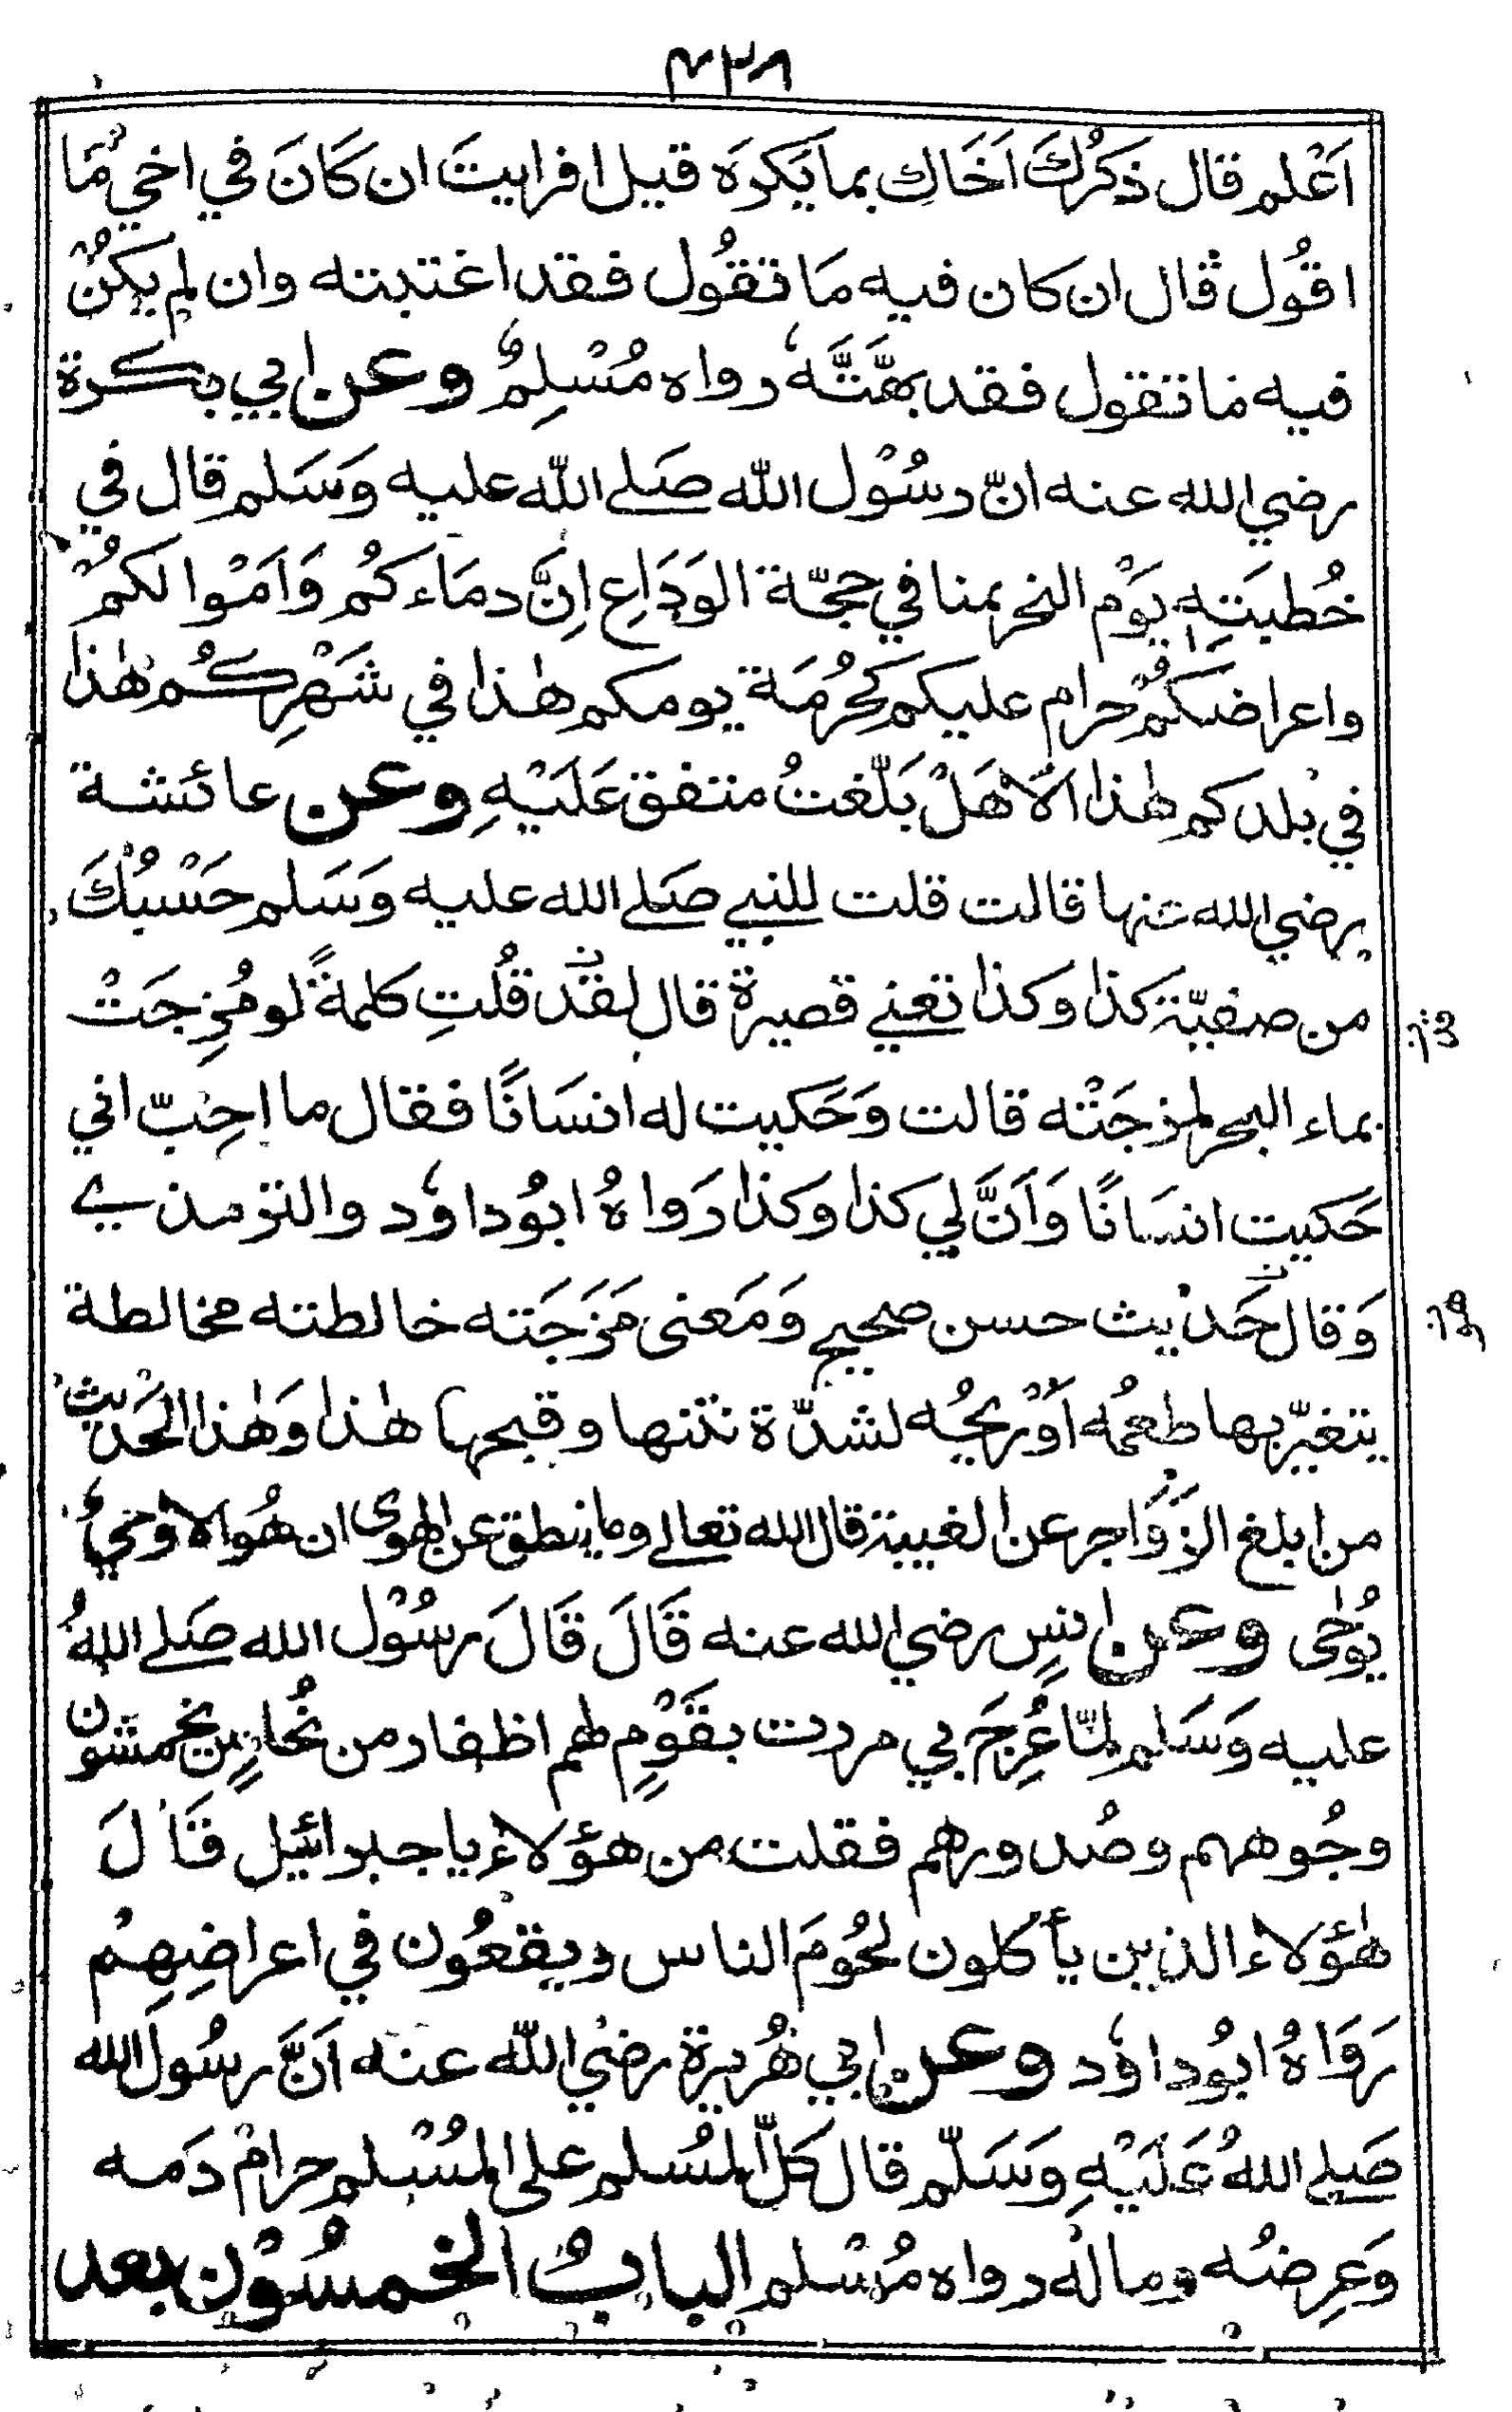 ۴۲۸
اَعْلم قال ذكرُكَ اَخَاك بما يَكرَه قيل افرايتَ ان كَانَ في اخي مَا
اقُول قال ان كان فيه مَا تقُول فقد اغتبته وان لم يكنْ
فيه ما تقول فقد بهَتَّه رواه مُسْلِمٌ وعن ابي بكرة
رضي الله عنه انّ رسُوْل الله صَلى الله عليه وَسَلم قال في
خُطبَتِهِ يَوْم النحر بمنا في حجّة الوَدَاعِ اِنَّ دمَاءكُم وَاَمْوالكُمْ
واعراضكُمْ حرام عليكم كَحُرْمَة يومكم هٰذا في شَهْرِكُم هٰذا
في بلدكم هٰذا اَلَا هَلْ بَلّغتُ متفق عَلَيْهِ وعن عائشة
رضي الله عنها قالت قلت للنبي صَلى الله عليه وَسَلم حَسْبُكَ
من صفيّة كذا وكذا تعني قصيرة قال لقَد قُلتِ كلمةً لو مُزِجَتْ
بماء البحر لمزجَتْه قالت وَحَكيت له انسَانًا فقال ما احِبّ اني
حَكيت انسَانًا وَاَنَّ لي كذا وكذا رَواهُ ابوُداؤد والترمذي
وَقال حَديث حسن صحيح وَمَعنى مَزَجَته خالطته مخالطة
يتغيّر بها طعمُه اَوْريحُه لشدّة نتنها وقبحها هٰذا وَهٰذا الحَديث
من ابلغ الزوَاجر عن الغيبة قال الله تعالى وما ينطق عن الهوى ان هُوالا وَحيٌ
يُوحٰى وعن انسٍ رضي الله عنه قَالَ قَالَ رسُوْل الله صَلى اللهُ
عليه وَسَلم لمّا عُرِجَ بي مررت بقَوْمٍ لهم اظفار من نُحاسٍ يخمشون
وجُوههم وصُدورهم فقلت من هؤلاء يا جبرائيل قَالَ
هٰؤلاء الذين يأكلون لحُومَ الناس ويقعُون في اعراضِهِم
رَوَاهُ ابوُداؤد وعن ابي هُريرة رضي اللّه عنه اَنَّ رسُول الله
صَلى اللهُ عَلَيْهِ وَسَلّم قال كلّ المُسلم على المُسْلم حرام دَمه
وَعِرضُه ومالُه رواه مُسْلم البابُ الخمسُوْن بعد